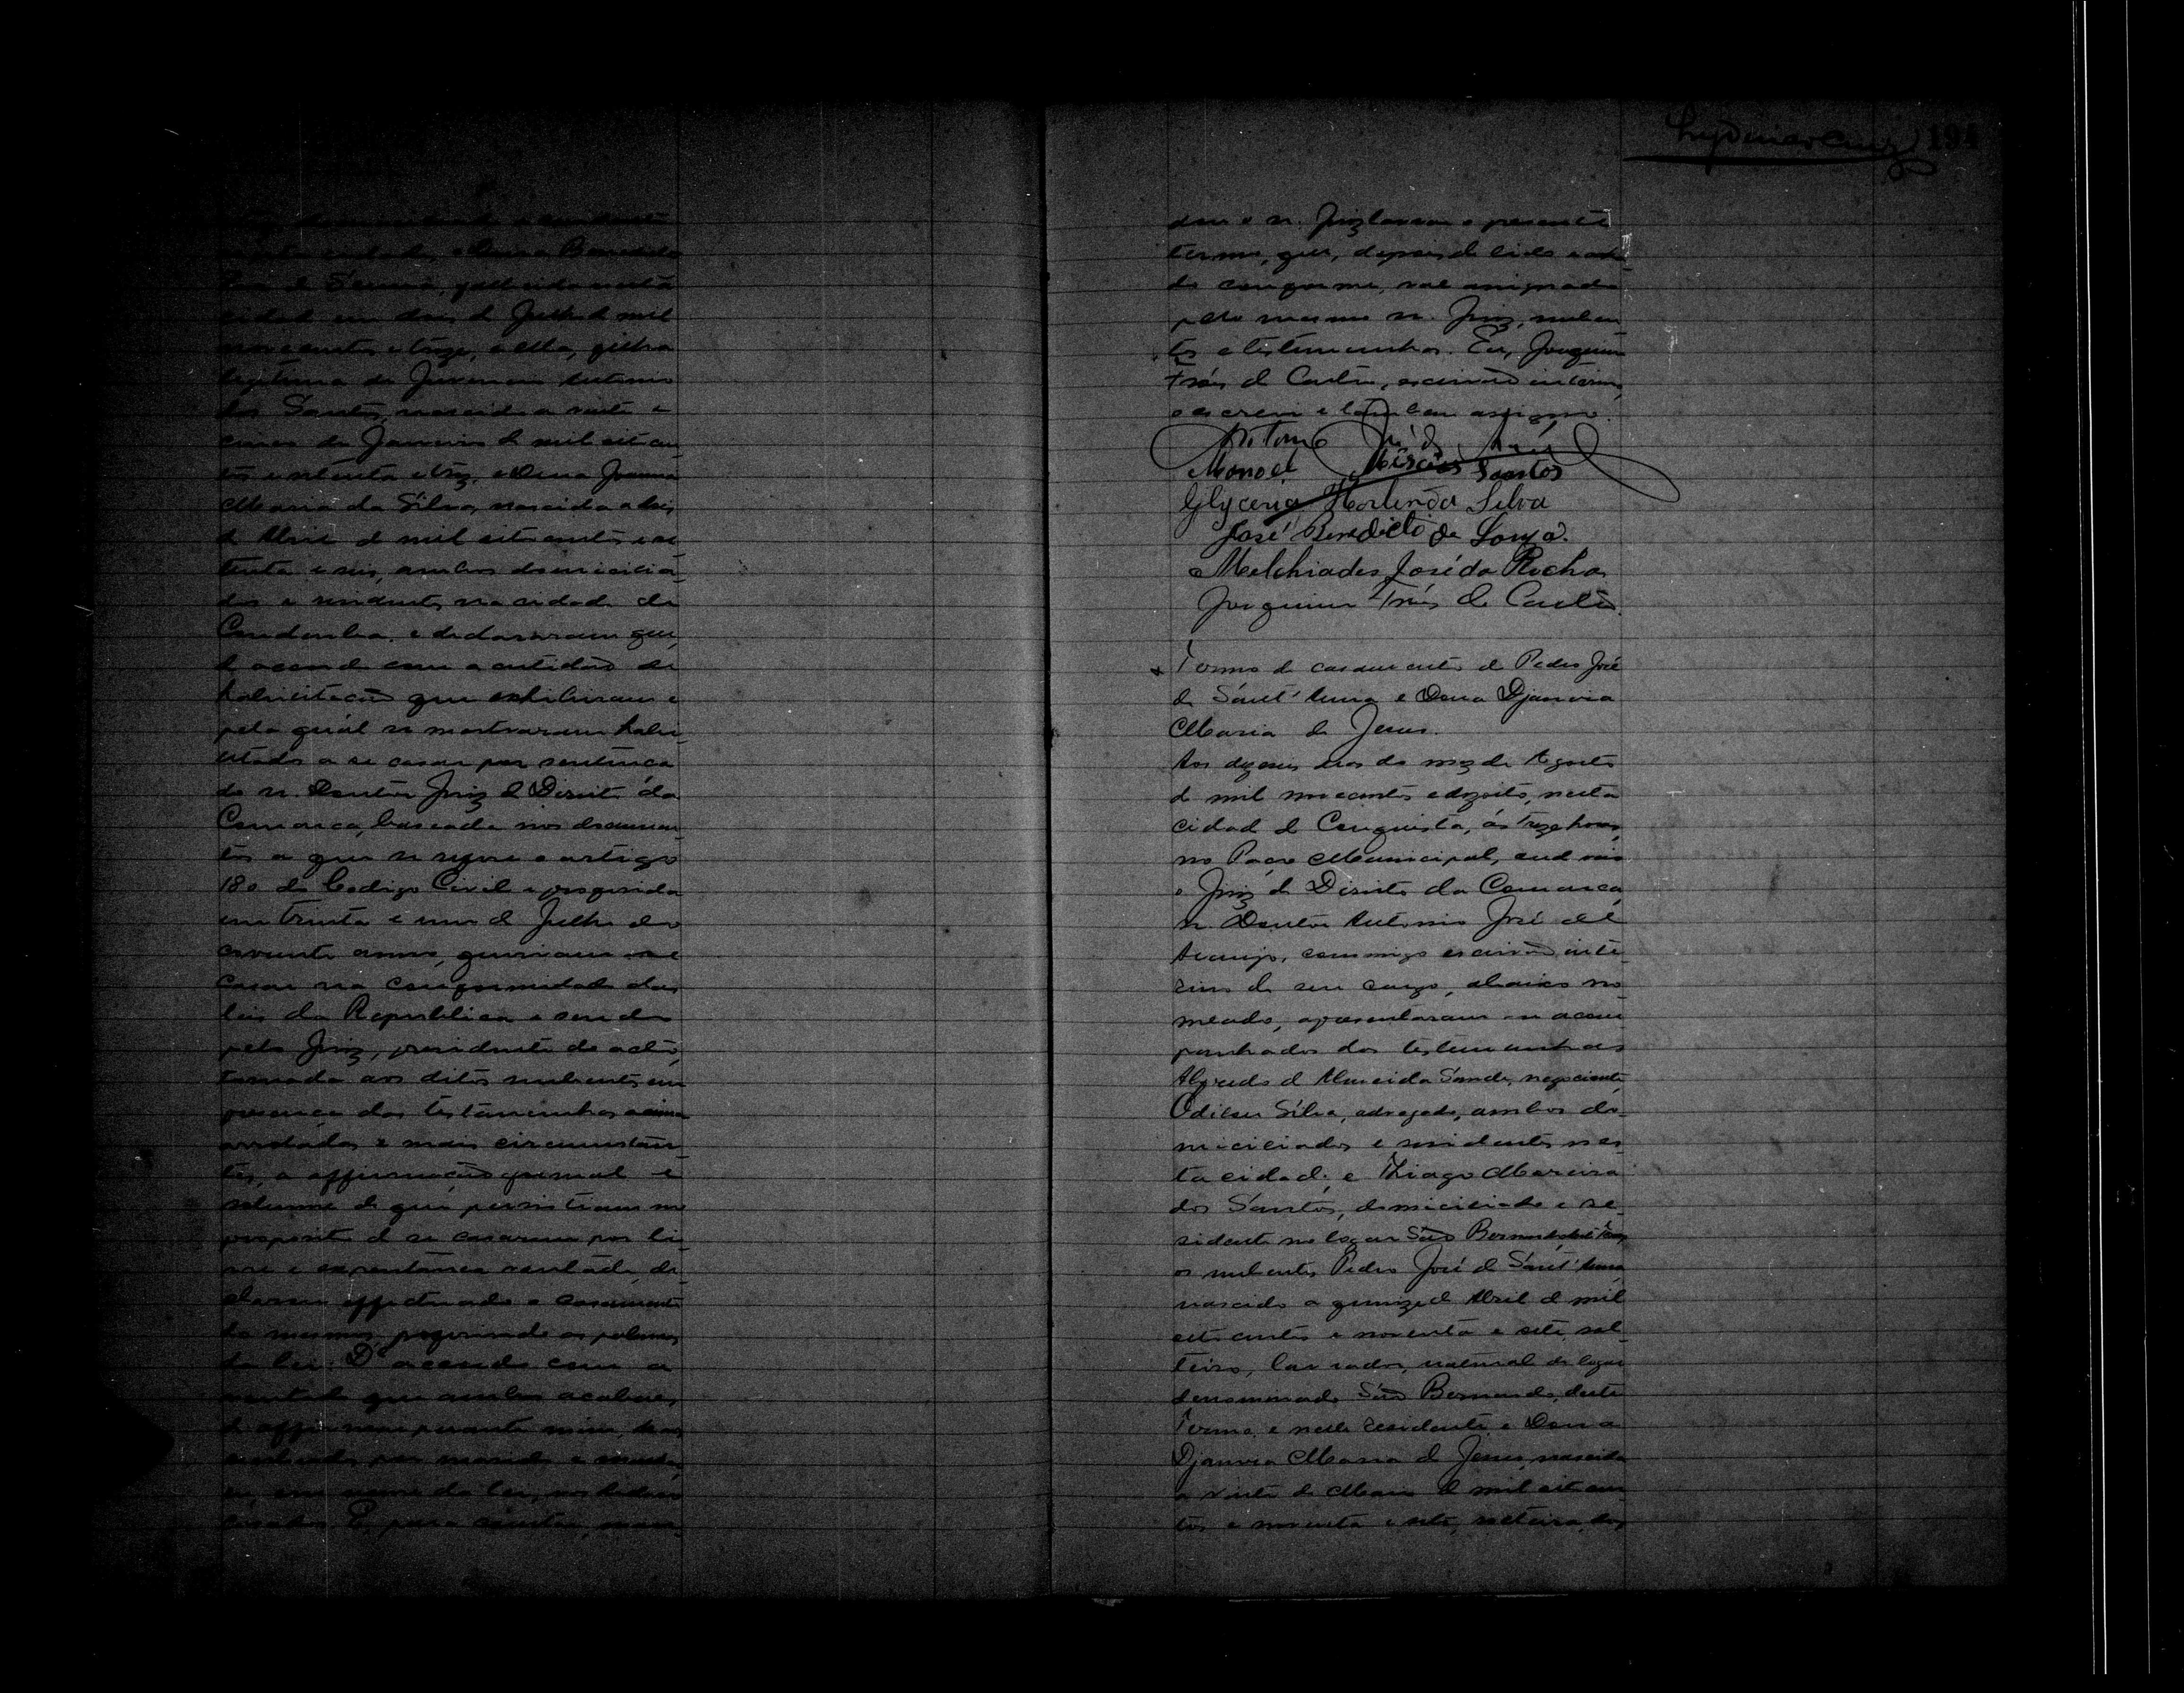 cidade em dois de Julho de mil
novecentos e treze, e ella, filha
legitima de Juvencio Antonio
dos Santos, nascida a vinte e
cinco de Janeiro de mil oitocen
tos e setenta e trez, e Dona Joanna
Maria da Silva, nascida a
de Abril de mil oitocentos e se
tenta e seis, ambos domicilia
dos e residentes na cidade de
Condeuba, e declararam que,
de accordo com a certidão de
habilitação que exhibiram e
pela qual se mostraram habi
litados a se casar por sentença
do sr. Doutor Juiz de Direito da
Comarca, baseada nos documen
tos a que se refere o artigo
180 do Codigo Civil e proferida
em trinta e um de Julho do
corrente anno, queriam se
casar na conformidade das
leis da Republica e sendo
pelo Juiz, presidente do acto,
tomada aos ditos nubentes em
presença das testemunhas acima
arroladas e mais circumstan
tes, a affirmação formal e
solemne de que persistiam no
proposito de se casarem por li
vre e espontanea vontade, de
clarou effectuado o casamento
do mesmo, proferindo as palavras
da lei: D'accordo com a
vontade que ambos acabaes
de affirmar perante mim, de vos
receberdes por marido e mulher,
eu, em nome da lei, vos declaro
casados. E, para constar, man
Lydia Cruz 194
dou o sr. Juiz lavrar o presente
termo, que, depois de lido e acha
do conforme, vae assignado
pelo mesmo sr. Juiz, nuben
tes e testemunhas. Eu, Joaquim
Fróes de Castro, escrivão interino,
o escrevi e tambem assigno.
Antonio José de Araujo
Manoel Santos
Glyceria Hortencia Silva
José Benedicto de Souza.
Melchiades José da Rocha
Joaquim Fróes de Castro.
Termo de casamento de Pedro José
de Sant'Anna e Dona Djanira
Maria de Jesus.
Aos dezeseis dias do mez de Agosto
de mil novecentos e dezoito, nesta
cidade de Conquista, ás treze horas,
no Paço Municipal, onde veio
o Juiz de Direito da Comarca,
sr. Doutor Antonio José de
Araujo, commigo escrivão inte
rino de seu cargo, abaixo no
meado, apresentaram-se acom
panhados das testemunhas
Alfredo de Almeida Sande, negociante,
Odilon Silva, advogado, ambos do
miciliados e residentes nes
ta cidade, e Thiago Moreira
dos Santos, domiciliado e re
sidente no logar São Bernardo
os nubentes Pedro José de Sant'Anna
nascido a quinze de Abril de mil
oitocentos e noventa e sete, sol
teiro, lavrador, natural do logar
denominado São Bernardo, deste
Termo, e nelle residente, e Dona
Djanira Maria de Jesus, nascida
a vinte de Maio de mil oitocen
tos e noventa e sete, solteira, do